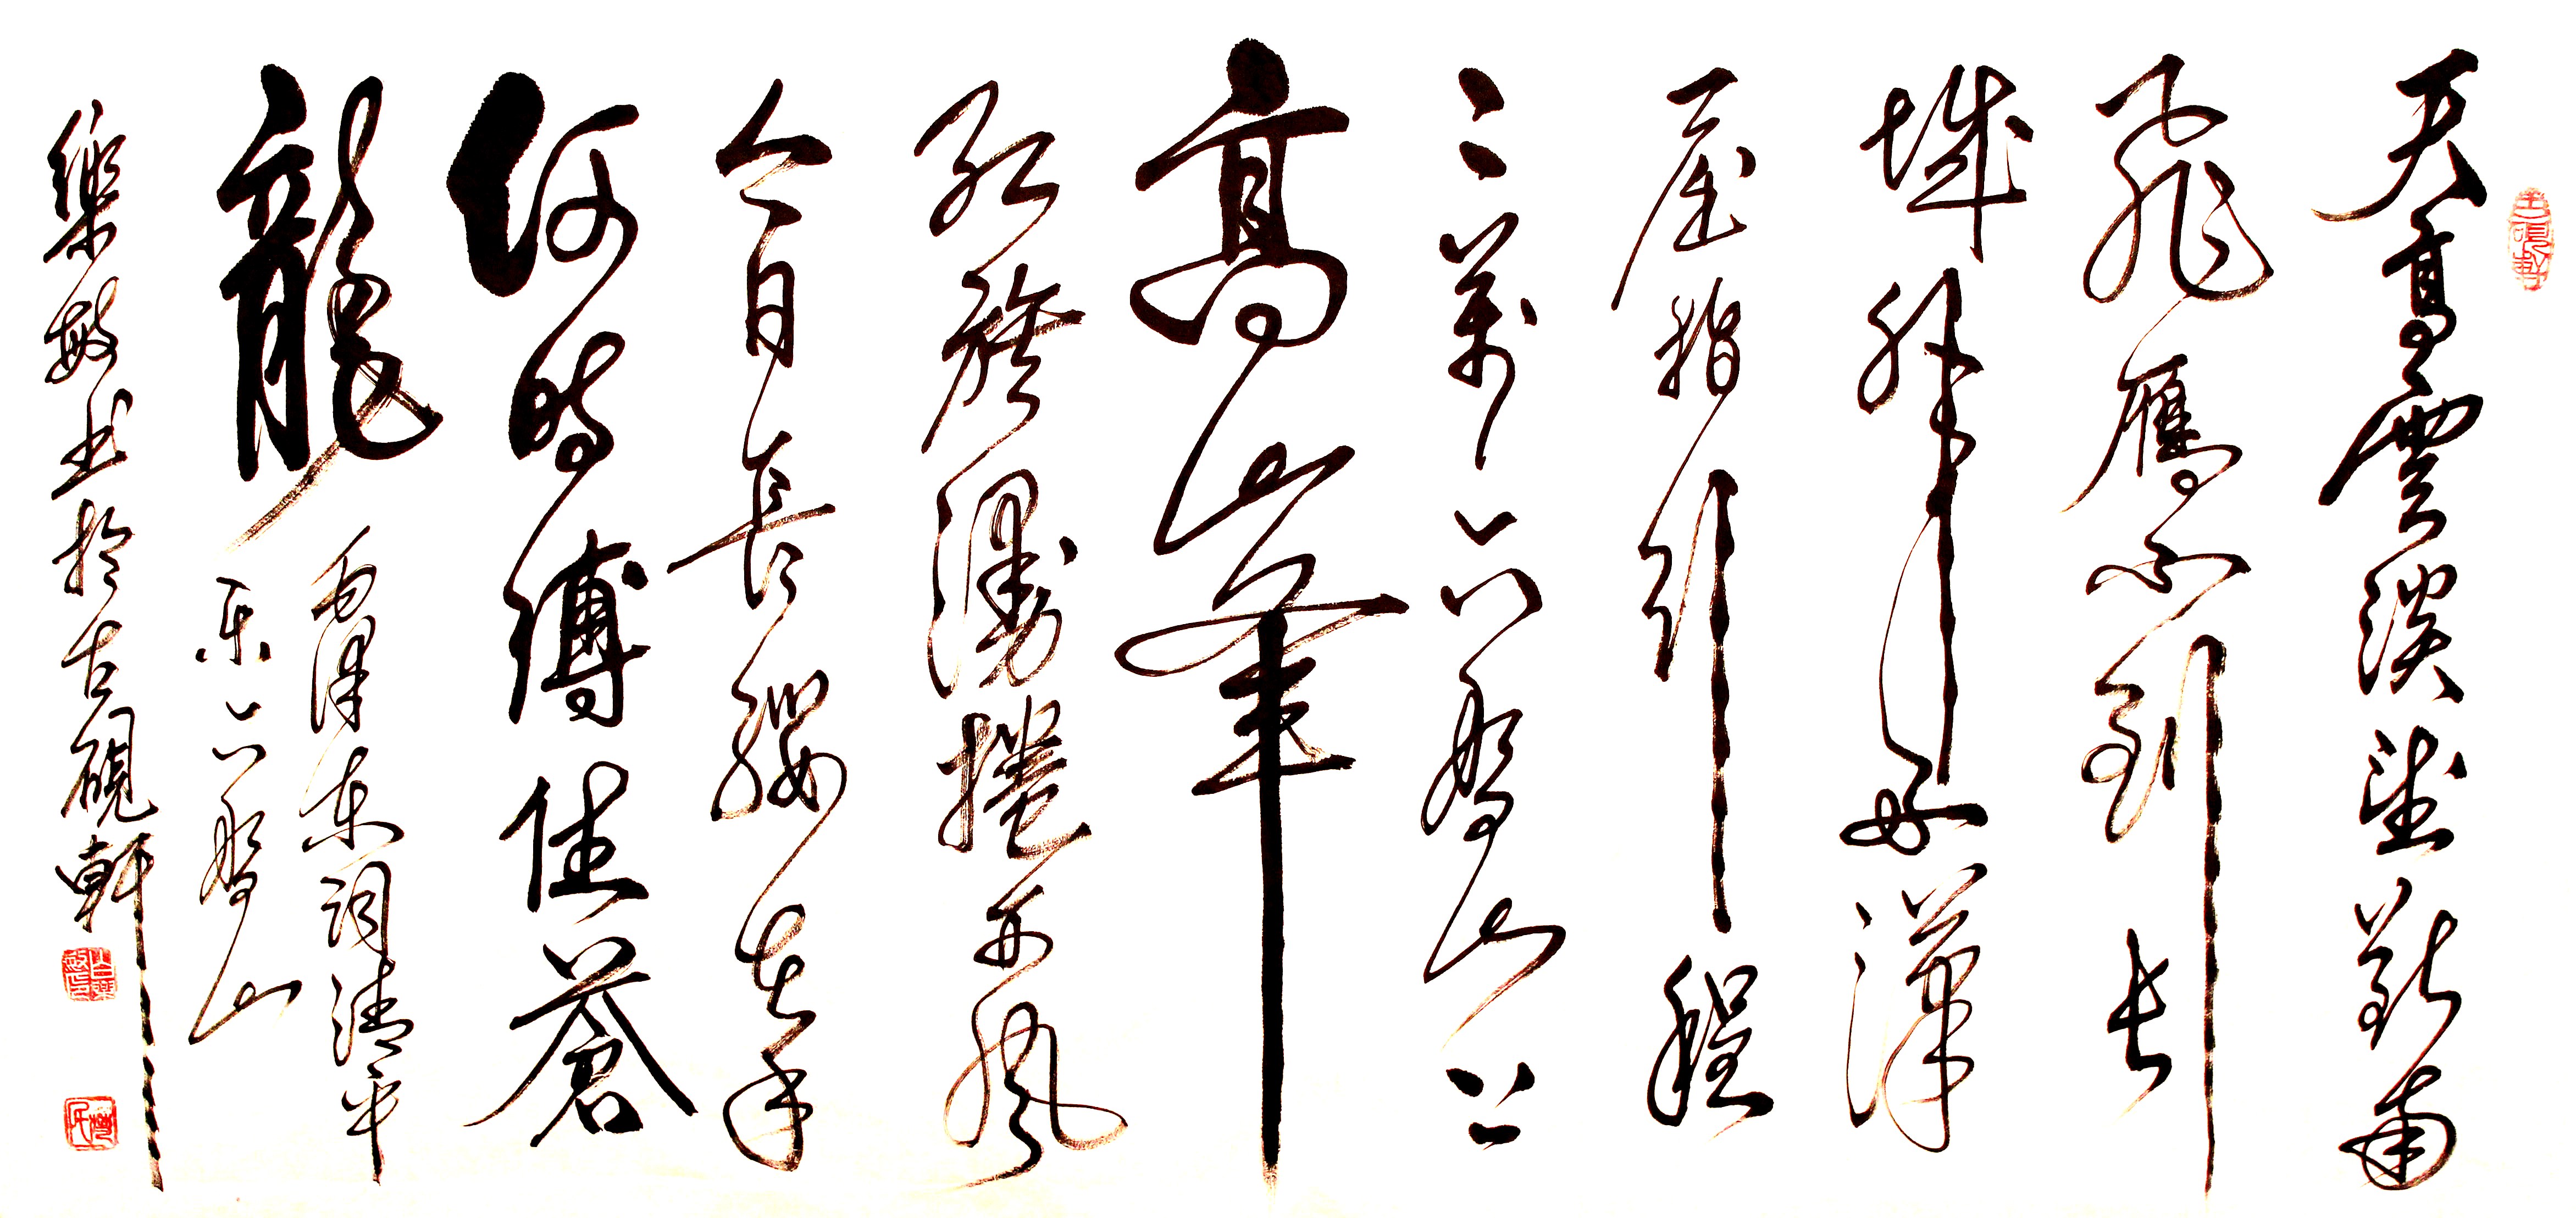 古硯軒
天高雲淡望斷南
飛鴈不到長
城非好漢
屈指行程
二萬六盤山上
高峯
紅旗漫捲西風
今日長纓在手
何時縛住蒼
龍
毛澤東詞清平
乐六盤山
樂敏书於古硯軒